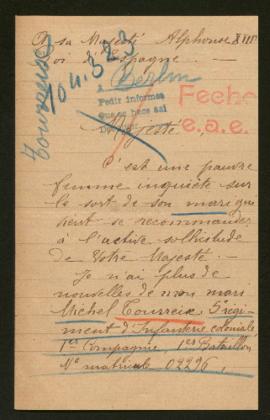 A sa Majesté Alphonse XIII
Roi d'Espagne
Tourreix
104.323
Berlin
A
Pedir informes
Fecho
e.a.e.
Majesté
C'est une pauvre
femme inquiète sur
le sort de son mari qui
vient se recommander
à l'active sollicitude
de Votre Majesté.
Je n'ai plus de
nouvelles de mon mari
Michel Tourreix, 5e régi-
ment d'Infanterie coloniale,
1re Compagnie, 1er Bataillon,
No matricule 02296,